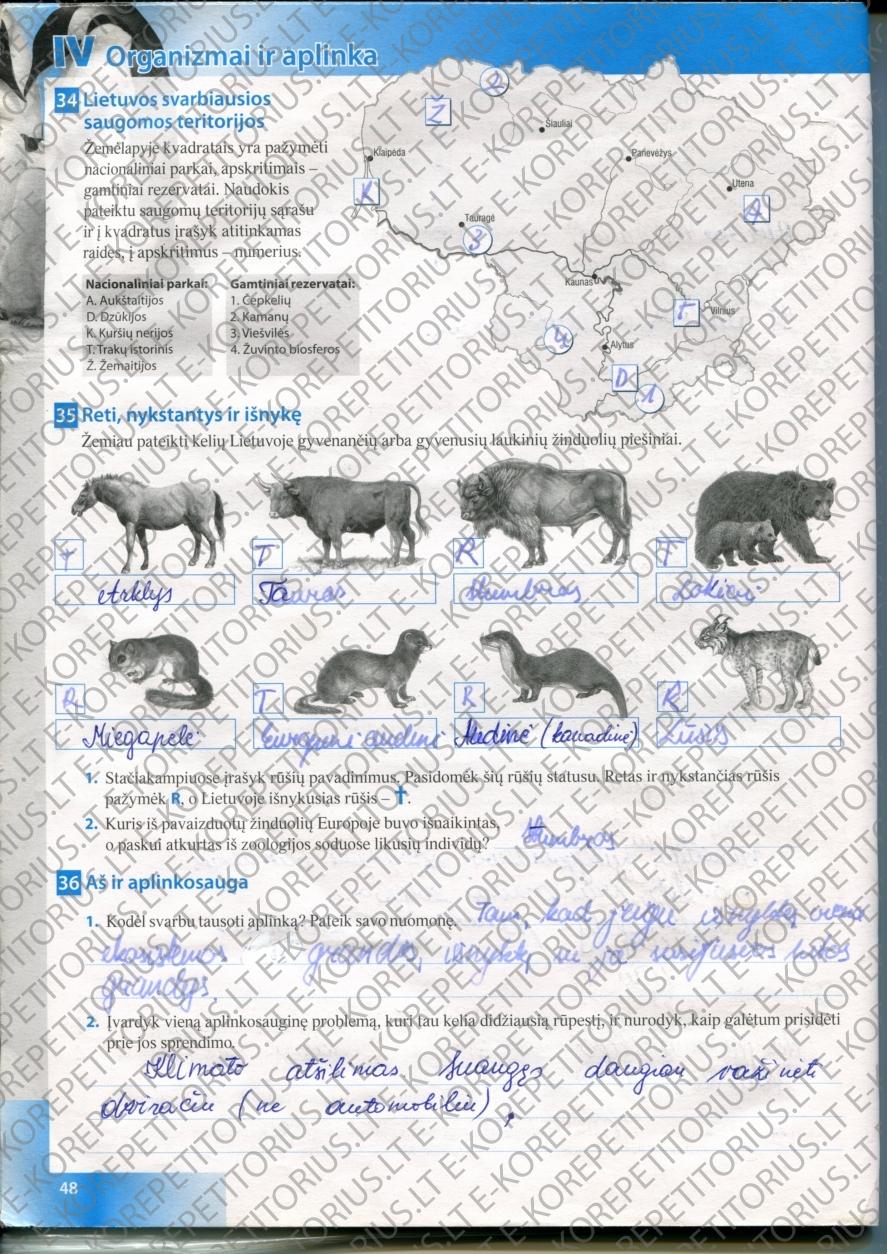 IV Organizmai ir aplinka
34 Lietuvos svarbiausios
saugomos teritorijos
Žemėlapyje kvadratais yra pažymėti
nacionaliniai parkai, apskritimais –
gamtiniai rezervatai. Naudokis
pateiktu saugomų teritorijų sąrašu
ir į kvadratus įrašyk atitinkamas
raides, į apskritimus – numerius.
Nacionaliniai parkai:
A. Aukštaitijos
D. Dzūkijos
K. Kuršių nerijos
T. Trakų istorinis
Ž. Žemaitijos
Gamtiniai rezervatai:
1. Čepkelių
2. Kamanų
3. Viešvilės
4. Žuvinto biosferos
2
Ž
Šiauliai
Klaipėda
Panevėžys
K
Utena
A
Tauragė
3
Kaunas
T
Vilnius
4
Alytus
D
1
35 Reti, nykstantys ir išnykę
Žemiau pateikti kelių Lietuvoje gyvenančių arba gyvenusių laukinių žinduolių piešiniai.
T T R T
Arklys Tauras Stumbras
R T R R
Miegapelė Europinė audinė (kanadinė) Lūšis
1. Stačiakampiuose įrašyk rūšių pavadinimus. Pasidomėk šių rūšių statusu. Retas ir nykstančias rūšis
pažymėk R, o Lietuvoje išnykusias rūšis – ✝.
2. Kuris iš pavaizduotų žinduolių Europoje buvo išnaikintas,
o paskui atkurtas iš zoologijos soduose likusių individų? Stumbras
36 Aš ir aplinkosauga
1. Kodėl svarbu tausoti aplinką? Pateik savo nuomonę. Tam, kad jeigu išnyktų viena
ekosistemos grandis, išnyktų su ja susijusios kitos
grandys.
2. Įvardyk vieną aplinkosauginę problemą, kuri tau kelia didžiausią rūpestį, ir nurodyk, kaip galėtum prisidėti
prie jos sprendimo.
Klimato atšilimas. Suaugęs daugiau važinėti
dviračiu (ne automobiliu).
48
E-KOREPETITORIUS.LT